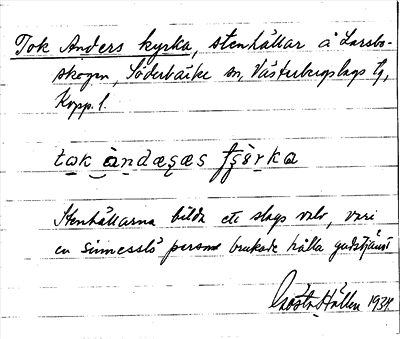 Tok Anders kyrka, stenhällar å Larsbo-
skogen, Söderbärke sn, Västerbergslags tg,
Kopp. l.
Stenhällarna bilda ett slags valv, vari
en sinnesslö person brukade hålla gudstjänst
Gösta Hållen 1934